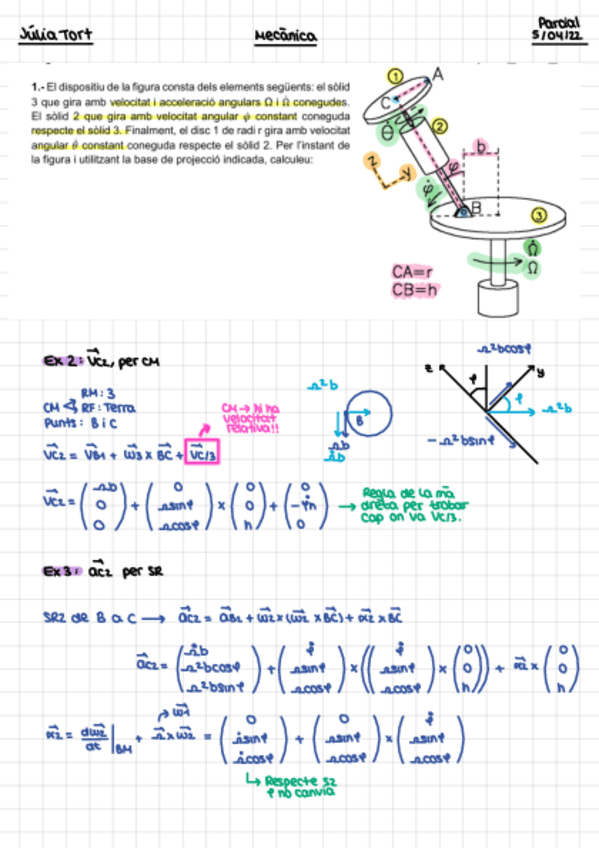 Júlia Tort
Mecànica
Parcial
5/04/22
1.- El dispositiu de la figura consta dels elements següents: el sòlid
3 que gira amb velocitat i acceleració angulars Ω i Ω̇ conegudes.
El sòlid 2 que gira amb velocitat angular φ̇ constant coneguda
respecte el sòlid 3. Finalment, el disc 1 de radi r gira amb velocitat
angular θ̇ constant coneguda respecte el sòlid 2. Per l'instant de
la figura i utilitzant la base de projecció indicada, calculeu:
1
A
C
θ̇
2
b
z
y
φ
φ̇
B
3
Ω̇
Ω
CA=r
CB=h
Ex 2: Vc2, per CM
RM: 3
CM RF: Terra
Punts: B i C
CM → hi ha
velocitat
relativa!!
Vc2 = VB1 + ω3 x BC + Vc/3
Ω²b
B
Ωb
Ω̇b
Ω²bcosφ
z
φ
y
φ
Ω²b
-Ω²bsinφ
Vc2 = (Ωb 0 0) + (0 Ωsinφ Ωcosφ) x (0 0 h) + (0 -φ̇h 0)
→ Regla de la mà
dreta per trobar
cap on va Vc/3.
Ex 3: ac2 per SR
SR2 de B a C → ac2 = aB2 + ω2 x (ω2 x BC) + α2 x BC
ac2 = (Ω̇b Ω²bcosφ Ω²bsinφ) + (φ̇ Ωsinφ Ωcosφ) x ((φ̇ Ωsinφ Ωcosφ) x (0 0 h)) + α2 x (0 0 h)
α2 = dω2/dt |BM + Ω x ω2 = (0 Ω̇sinφ Ω̇cosφ) + (0 Ωsinφ Ωcosφ) x (φ̇ Ωsinφ Ωcosφ)
↳ Respecte S2
φ no canvia